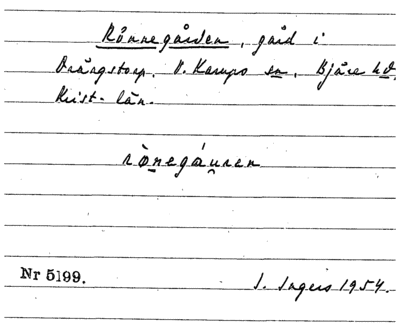 Rånnegården, gård i
Drängstorp, V. Karups sn, Bjäre hd,
Krist. län.
rònegáuren
Nr 5199. I. Ingers 1954.